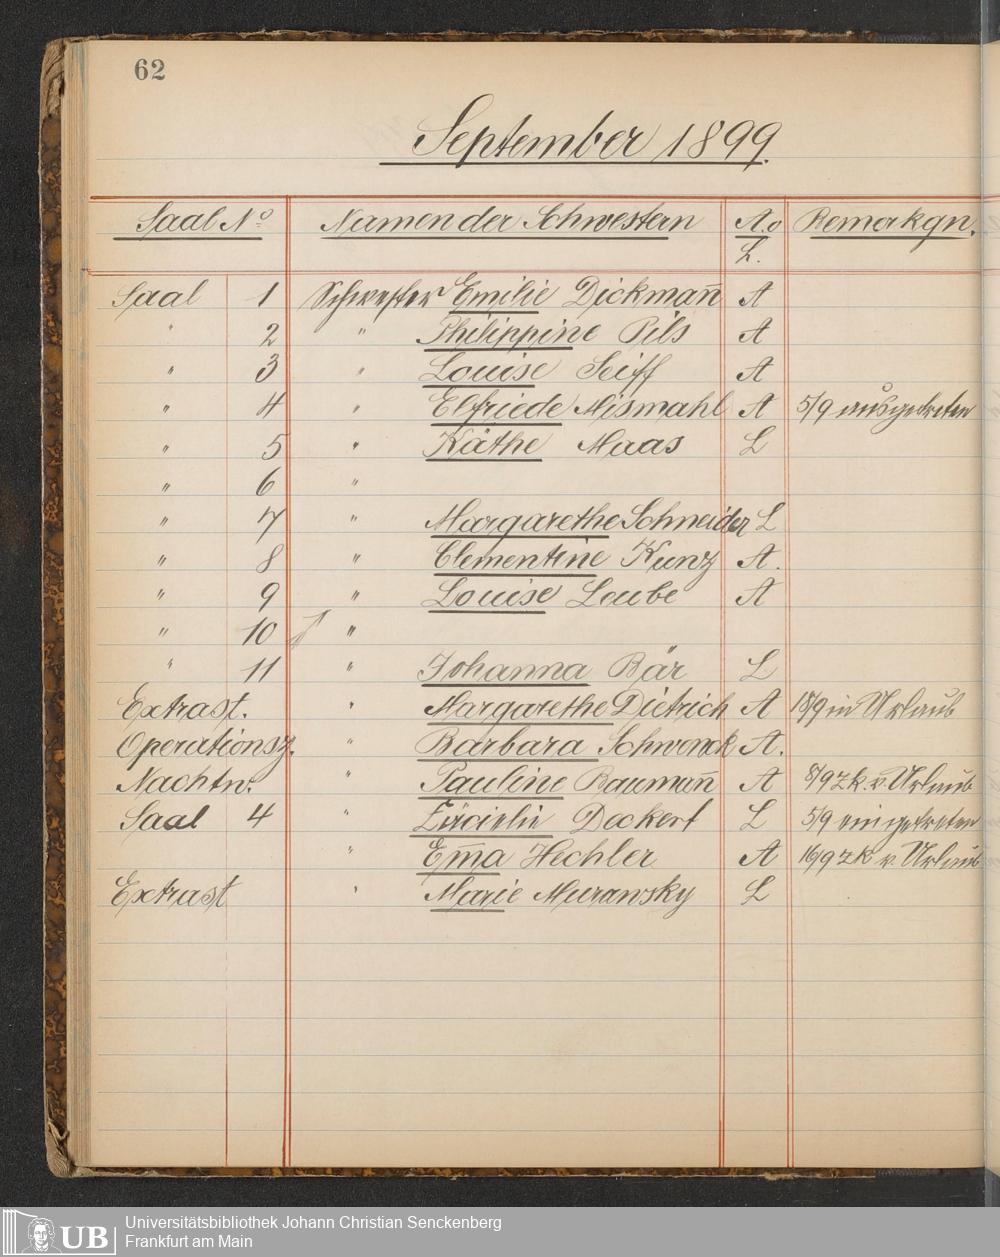 62
September 1899.
Saal No Namen der Schwestern A. o L. Bemerkgn.
Saal 1 Schwester Emilie Dickman̄ A
" 2 " Philippine Pils A
" 3 " Louise Seiff A
" 4 " Elfriede Mismahl A 5/9 ausgetreten
" 5 " Käthe Maas L
" 6 "
" 7 " Margarethe Schneider L
" 8 " Clementine Kunz A.
" 9 " Louise Laube A
" 10 "
" 11 " Johanna Bär L
Extrast. " Margarethe Dietrich A 18/9 in Urlaub
Operationsz. " Barbara Schwenck A.
Nachtw. " Pauline Bauman̄ A 8/9 zk. v. Urlaub
Saal 4 " Deckert L 5/9 eingetreten
" Em̄a Hechler A 16/9 zk v. Urlaub
Extrast " Marie Murawsky L
UB Universitätsbibliothek Johann Christian Senckenberg
Frankfurt am Main